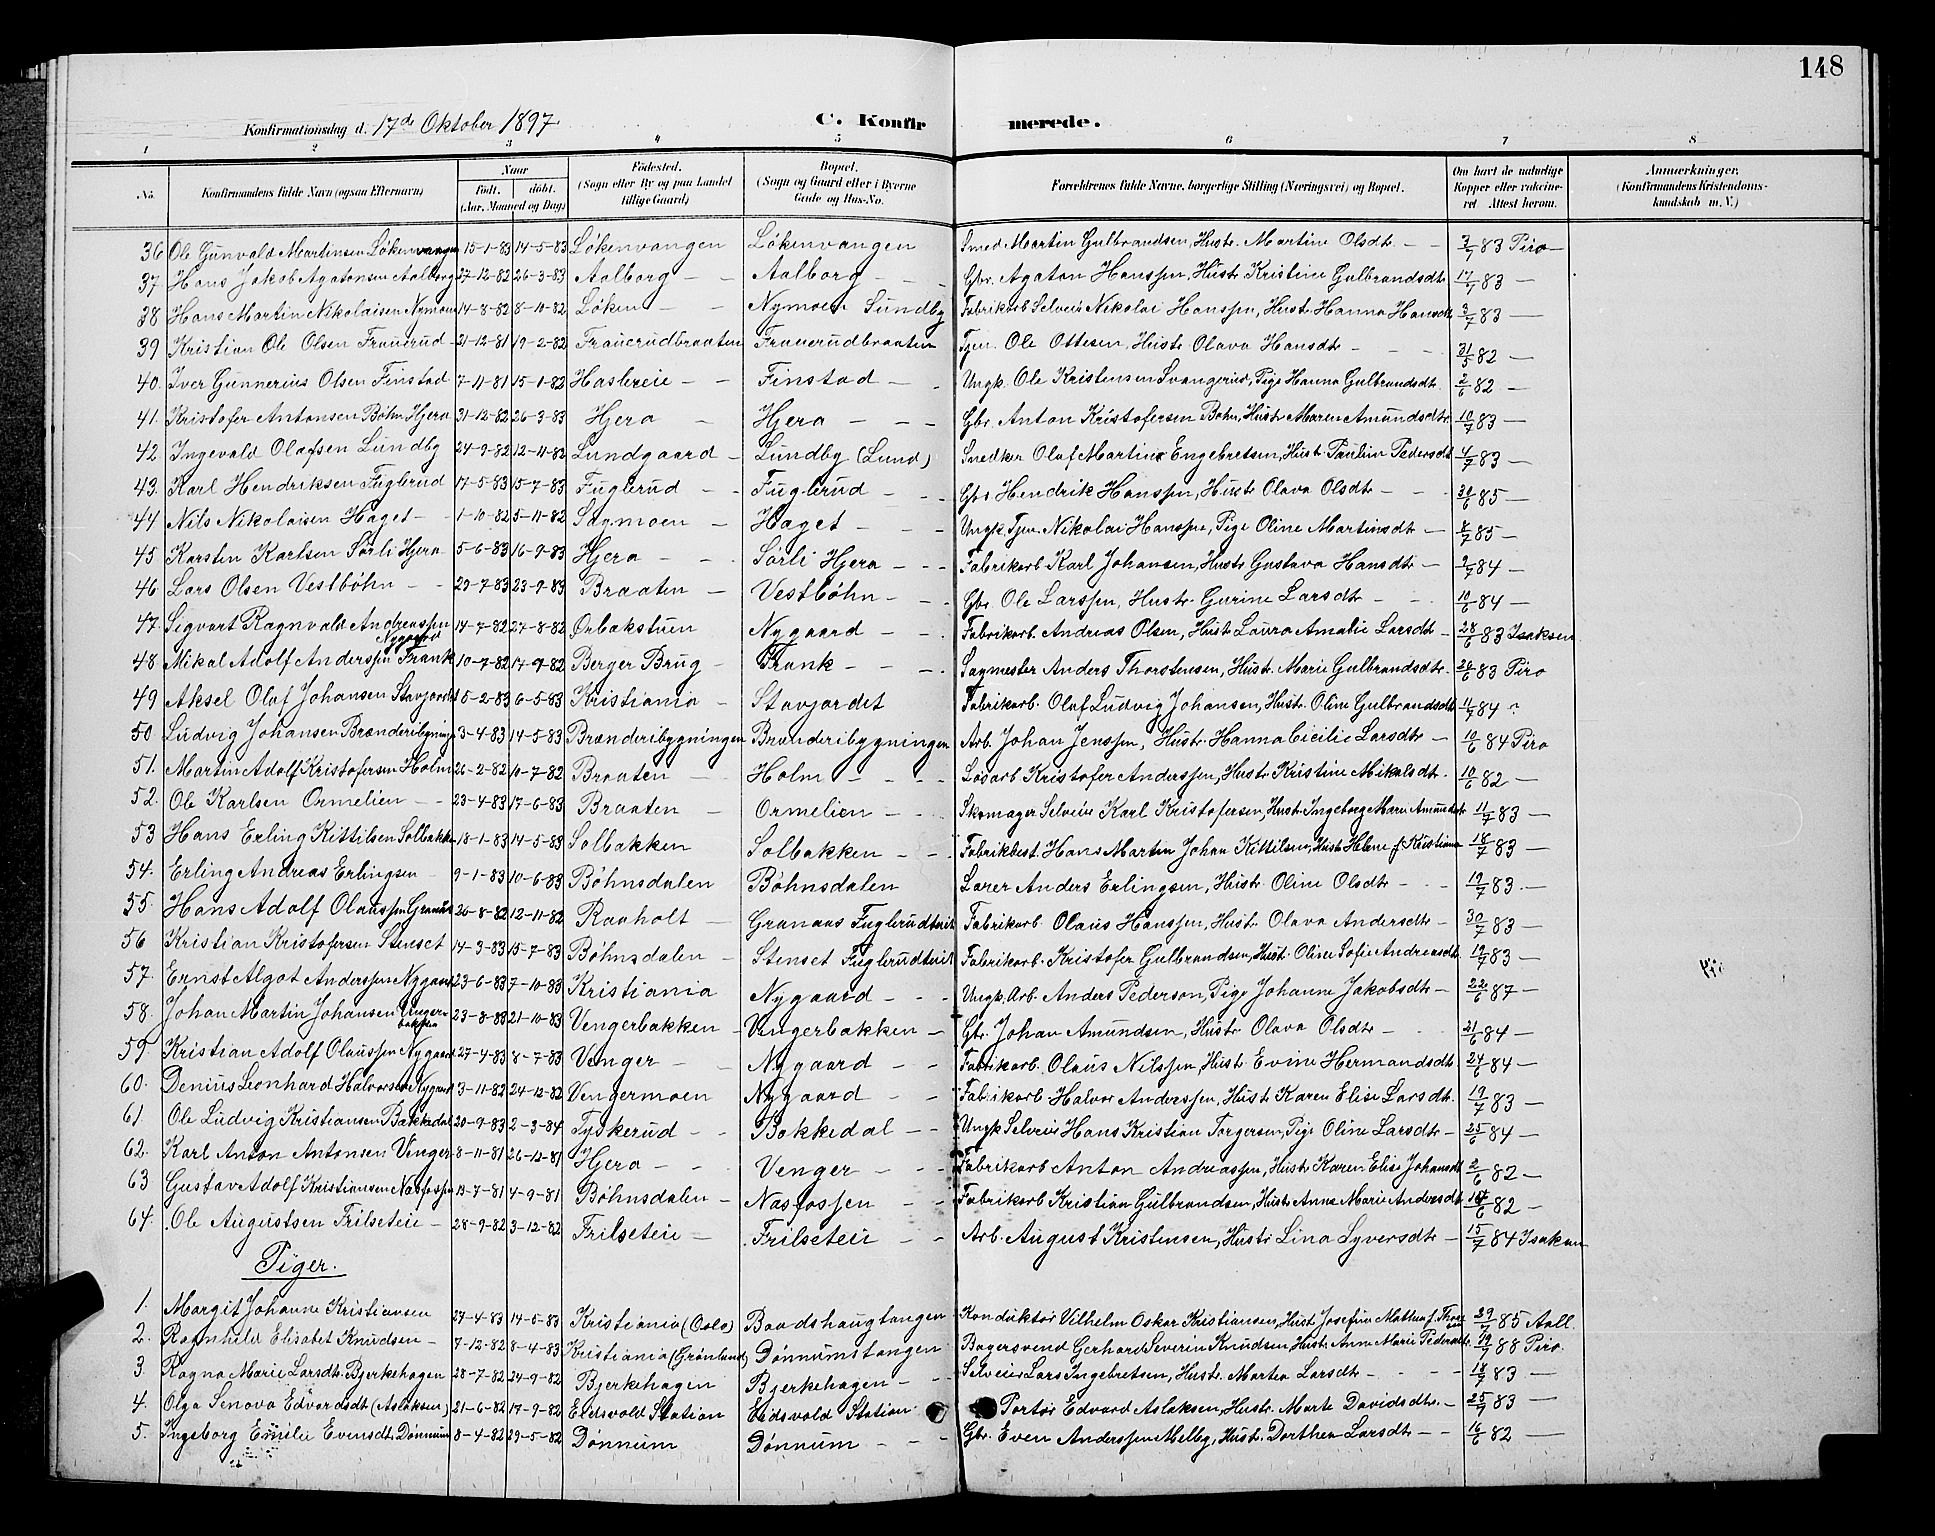 148
Konfirmationsdag d. 17de Oktober 1897 C. Konfirmerede.
1 2 3 4 5 6 7 8
No. Konfirmandens fulde Navn (ogsaa Efternavn) Naar født. døbt. (Aar, Maaned og Dag) Födested. (Sogn eller By og paa Landet tillige Gaard) Bopæl. (Sogn og Gaard eller i Byerne Gade og Hus-No. Forældrenes fulde Navne, borgerlige Stilling (Næringsvei) og Bopæl. Om havt de naturlige Kopper eller vaccineret. Attest herom. Anmærkninger. (Konfirmandens Kristendomskundskab m. V.)
36 Ole Gunvald Martinsen Lökenvangen 15-1-83 14-5-83 Lökenvangen Lökenvangen Smed Martin Gulbrandsen, Hustr. Martine Olsdtr 3/7 83 Piro
37 Hans Jakob Agatonsen Aalborg 27-12-82 26-3-83 Aalborg Aalborg Gbr. Agaton Hanssen, Hustr Kristine Gulbrandsdtr 17/7 83 —
38 Hans Martin Nikolaisen Nymoen 14-8-82 8-10-82 Løken Nymoen Sundby Fabrikarb Selveier Nikolai Hanssen, Hustr Hanna Hansdtr 3/7 83 —
39 Kristian Ole Olsen Frauerud 21-12-81 19-2-82 Frauerudbraaten Frauerudbraaten Tjen. Ole Ottesen, Hustr Olava Hansdtr 31/5 82 —
40. Iver Gunnerius Olsen Finstad 7-11-81 15-1-82 Haslereie Finstad Ungk. Ole Kristensen Svangerud, Pige Hanna Gulbrandsdtr 2/6 82 —
41. Kristofer Antonsen Bøhn Hjera 31-12-82 26-3-83 Hjera Hjera Gbr. Anton Kristofersen Bøhn, Hustr Maren Amundsdtr. 10/7 83 —
42 Ingevald Olafsen Lundby 24-9-82 12-11-82 Lundgaard Lundby (Lund) Snedker Olaf Martin Engebretsen, Hustr Pauline Pedersdt 4/7 83 —
43. Karl Hendriksen Fuglerud 17-5-83 15-7-83 Fuglerud Fuglerud Gbr Hendrik Hanssen, Hustr Olava Olsdtr 85 —
44 Nils Nikolaisen Haget 1-10-82 5-11-82 Sagmoen Haget Ungk. Tjen. Nikolai Hanssen, Pige Oline Martinsdtr 85 —
45 Karsten Karlsen Sørli Hjera 5-6-83 16-9-83 Hjera Sørli Hjera Fabrikarb Karl Johansen, Hustr Gustava Hansdtr 2/7 84 —
46 Lars Olsen Vestbøhn 29-7-83 23-9-83 Braaten Vestbøhn Gbr. Ole Larssen, Hustr. Gurine Larsdtr 10/6 84 —
47. Sigvart Ragnvald Andreassen Nygaard 14-7-82 27-8-82 Ørbakstuen Nygaard Fabrikarb. Andreas Olsen, Hustr Laura Amalie Larsdtr 28/6 83 Isaksen
48 Mikal Adolf Anderssen Frank 10-7-82 17-9-82 Berger Brug Frank Sagmester Anders Thorstensen, Hustr. Marie Gulbrandsdtr. 26/6 83 Piro
49 Aksel Olaf Johansen Stavjordet 15-2-83 6-5-83 Kristiania Stavjordet Fabrikarb. Olaf Ludvig Johansen, Hustr. Oline Gulbrandsdt 11/7 84 ?
50. Ludvig Johansen Brænderibygningen 3-4-83 14-5-83 Brænderibygningen Brænderibygningen Arb. Johan Jenssen, Hustr. Hanna Cicilie Larsdtr 10/6 84 Piro
51. Martin Adolf Kristofersen Holm 26-2-82 10-7-82 Braaten Holm Løsarb Kristofer Anderssen, Hustr Kristine Mikalsdtr. 10/6 82 —
52. Ole Karlsen Ormelien 23-4-83 17-6-83 Braaten Ormelien Skomager Selveier Karl Kristofersen, Hustr Ingeborg Marie Amundsdtr 11/7 83 —
53 Hans Erling Kittilsen Solbakken 18-1-83 14-5-83 Solbakken Solbakken Fabrikbest. Hans Martin Johan Kittilsen, Hustr Helene f. Kristiansen 18/7 83 —
54. Erling Andreas Erlingsen 9-1-83 10-6-83 Bøhnsdalen Bøhnsdalen Lærer Anders Erlingsen, Hustr. Oline Olsdtr 19/7 83. —
55. Hans Adolf Olaussen Granaas 26-8-82 12-11-82 Raaholt Granaas Fuglerudteiet Fabrikarb. Olaus Hanssen, Hustr. Olava Andersdtr 30/7 83 —
56 Kristian Kristofersen Stenset 14-3-83 15-7-83 Böhnsdalen Stenset Fuglerudteiet Fabrikarb. Kristofer Gulbrandsen, Hust. Oline Sofie Andreasdtr 19/7 83 —
57. Ernst Algot Anderssen Nygaard 23-6-83 7-10-83 Kristiania Nygaard Ungk. Arb. Anders Pederson, Pige Johanne Jakobsdtr 22/6 87 —
58. Johan Martin Johansen Vengerbakken 23-8-83 21-10-83 Vengerbakken Vengerbakken Gbr. Johan Amundsen, Hustr. Olava Olsdtr 21/6 84 —
59. Kristian Adolf Olaussen Nygaard 27-4-83 8-7-83 Venger Nygaard Fabrikarb. Olaus Nilssen, Hustr Evine Hermandsdtr 24/6 84 —
60. Denius Leonhard Halvorsen Nygaard 3-11-82 24-12-82 Vengermoen Nygaard Fabrikarb Halvor Anderssen, Hustr Karen Elise Larsdtr. 19/7 83 —
61. Ole Ludvig Kristiansen Bakkedal 20-9-83 2-3-84 Tyskerud Bakkedal Ungk Selveier Hans Kristian Torgersen, Pige Oline Larsdtr 25/6 84 —
62. Karl Anton Antonsen Venger 8-11-81 26-12-81 Hjera Venger Fabrikarb Anton Andreassen, Hustr Karen Elise Johansdt 2/6 82 —
63 Gustav Adolf Kristiansen Nasfossen 13-7-81 4-9-81 Bøhnsdalen Nasfossen Fabrikarb Kristian Gulbrandsen, Hustr Anne Marie Andersdt 82 —
64. Ole Augustsen Frilseteie 28-9-82 3-12-82 Frilseteie Frilseteie Arb. August Kristensen, Hustr Lina Syversdtr 15/7 84 Isaksen
Piger.
1. Margit Johanne Kristiansen 27-4-83 14-5-83 Kristiania (Oslo) Baadshaugtangen Konduktør Vilhelm Oskar Kristiansen, Hust. Josefine Mathea f. 29/7 85 Aall.
2. Ragnhild Elisabet Knudsen 7-12-82 8-4-83 Kristiania (Grønland) Dønnumstangen Bagersvend Gerhard Severin Knudsen Hustr. Anne Marie Pedersdtr. 19/7 88 Piro.
3. Ragna Marie Larsdtr. Bjerkehagen 28-7-82 24-9-82 Bjerkehagen Bjerkehagen Selveier Lars Ingebretsen, Hustr. Martea Larsdtr 18/7 83 —
4. Olga Senova Edvardsdt (Aslaksen) 21-6-82 17-9-82 Eidsvold Station Eidsvold Station Portør Edvard Aslaksen, Hustr. Marte Davidsdtr. 25/7 83 —
5. Ingeborg Emilie Evensdt Dønnum 8-4-82 29-5-82 Dønnum Dønnum Gbr. Even Anderssen Melby, Hustr. Dorthea Larsdtr 16/6 82 —